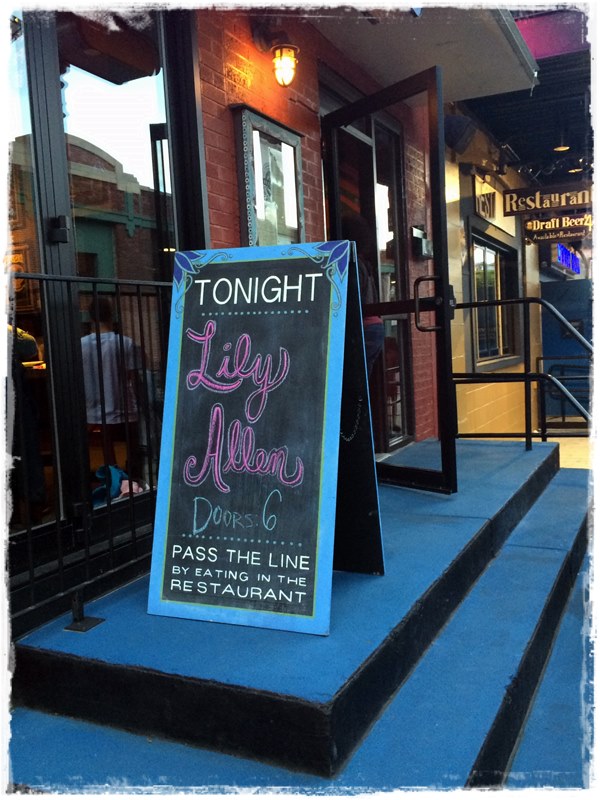 TONIGHT
Lily
Allen
DOORS: 6
PASS THE LINE
BY EATING IN THE
RESTAURANT
Restaurant
Draft Beer
Available